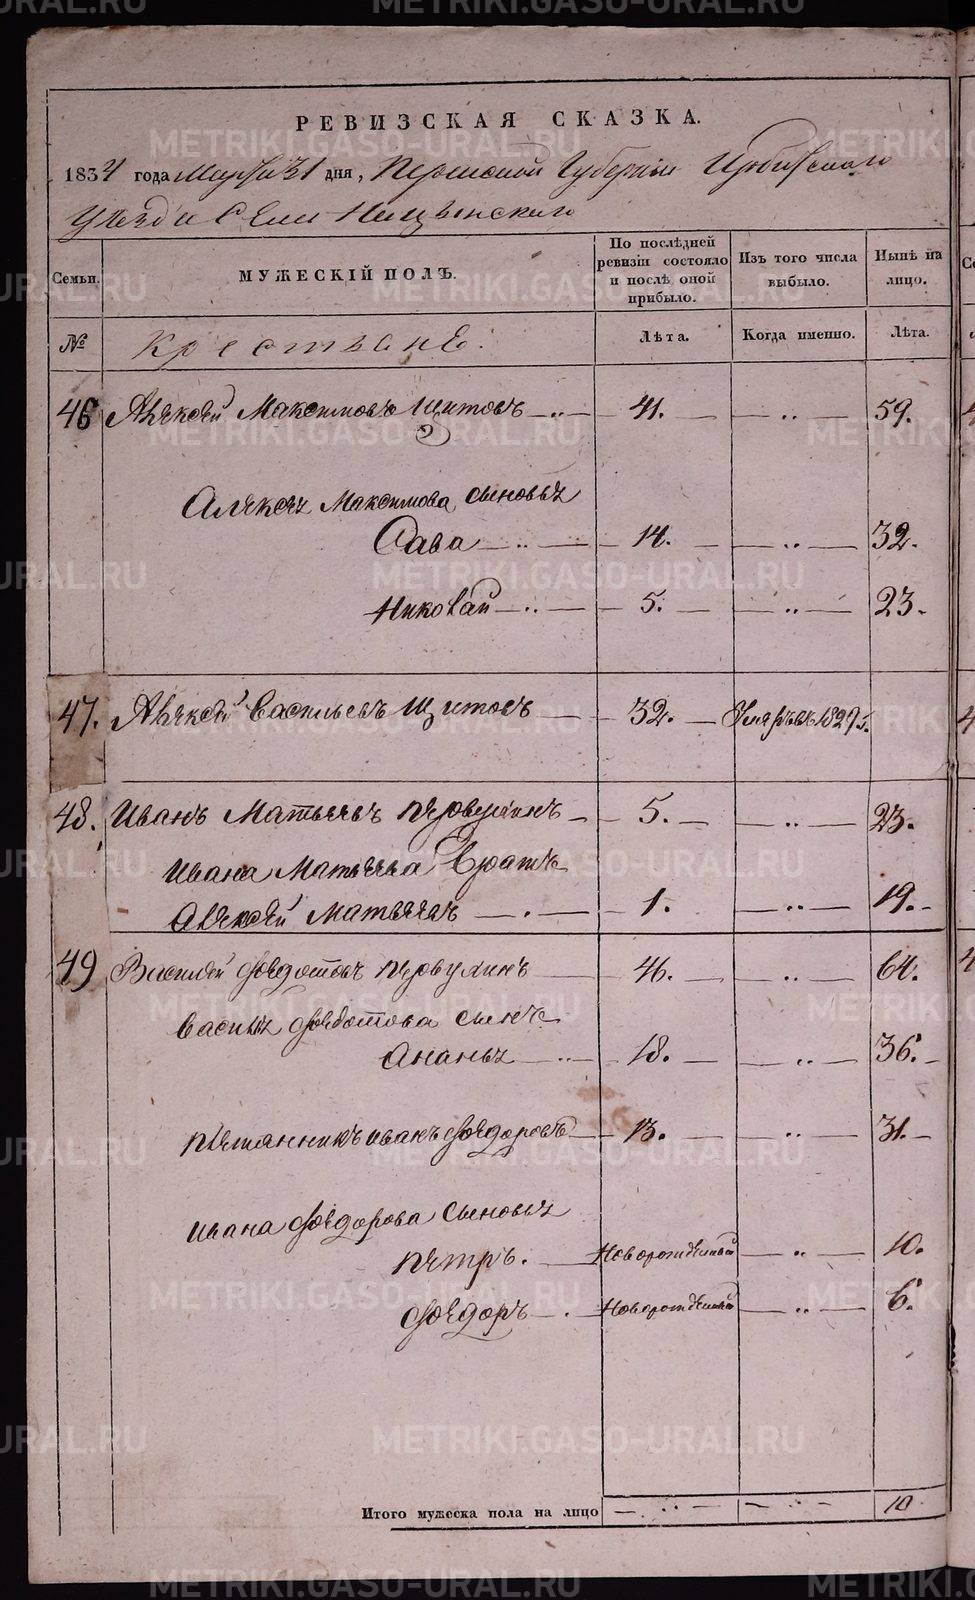 РЕВИЗСКАЯ СКАЗКА.
1834 года Марта 31 дня, Пермской Губернии Ирбитскаго
Уезда Села Ницынскаго
Семьи. МУЖЕСКІЙ ПОЛЪ. По послѣдней ревизіи состояло и послѣ оной прибыло. Изъ того числа выбыло. Нынѣ на лицо.
№ Крестьяне. Лѣта. Когда именно. Лѣта.
46 Алексей Максимовъ Щитовъ 41. 59.
Алексея Максимова сыновья
Сава 14. 32.
Николай 5. 23.
47. Алексей Васильевъ Щитовъ 32. Умеръ въ 1829 г.
48. Иванъ Матвеевъ Первухинъ 5. 23.
Ивана Матвеева братъ
Алексей Матвеевъ 1. 19.
49 Василей Федотовъ Первухинъ 46. 64.
Василья Федотова сынъ
Ананья 18. 36.
племянникъ иванъ Федоровъ 13. 31.
ивана Федорова сыновья
Петръ. Новорожденный 10.
Федоръ Новорожденный 6.
Итого мужеска пола на лицо 10
METRIKI.GASO-URAL.RU